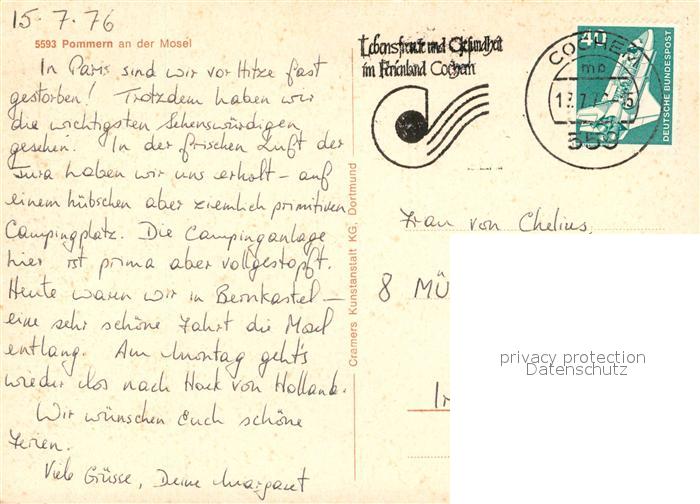 15.7.76
5593 Pommern an der Mosel
In Paris sind wir vor Hitze fast
gestorben! Trotzdem haben wir
die wichtigsten Sehenswürdigen
gesehen. In der frischen Luft der
Jura haben wir uns erholt - auf
einem hübschen aber ziemlich primitiven
Campingplatz. Die Campinganlage
hier ist prima aber vollgestopft.
Heute waren wir in Bernkastel -
eine sehr schöne Fahrt die Mosel
entlang. Am Montag geht's
wieder los nach Hoek von Holland.
Wir wünschen Euch schöne
Ferien.
Viele Grüsse, Deine Margaret
Cramers Kunstanstalt KG, Dortmund
Lebensfreude und Gesundheit
im Ferienland Cochem
COCHEM
mb
559
40
DEUTSCHE BUNDESPOST
Frau von Chelius,
8 MÜ
privacy protection
Datenschutz